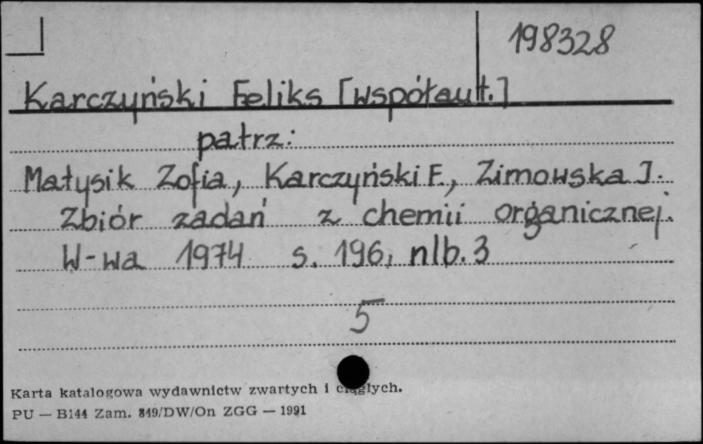 198328
Karczyński Feliks [współaut.]
patrz:
Matysik Zofia, Karczyński F., Zimowska J.
Zbiór zadań z chemii organicznej.
W-wa 1974 s. 196, nlb. 3
5
Karta katalogowa wydawnictw zwartych i ciągłych.
PU — B144 Zam. 849/DW/On ZGG — 1991